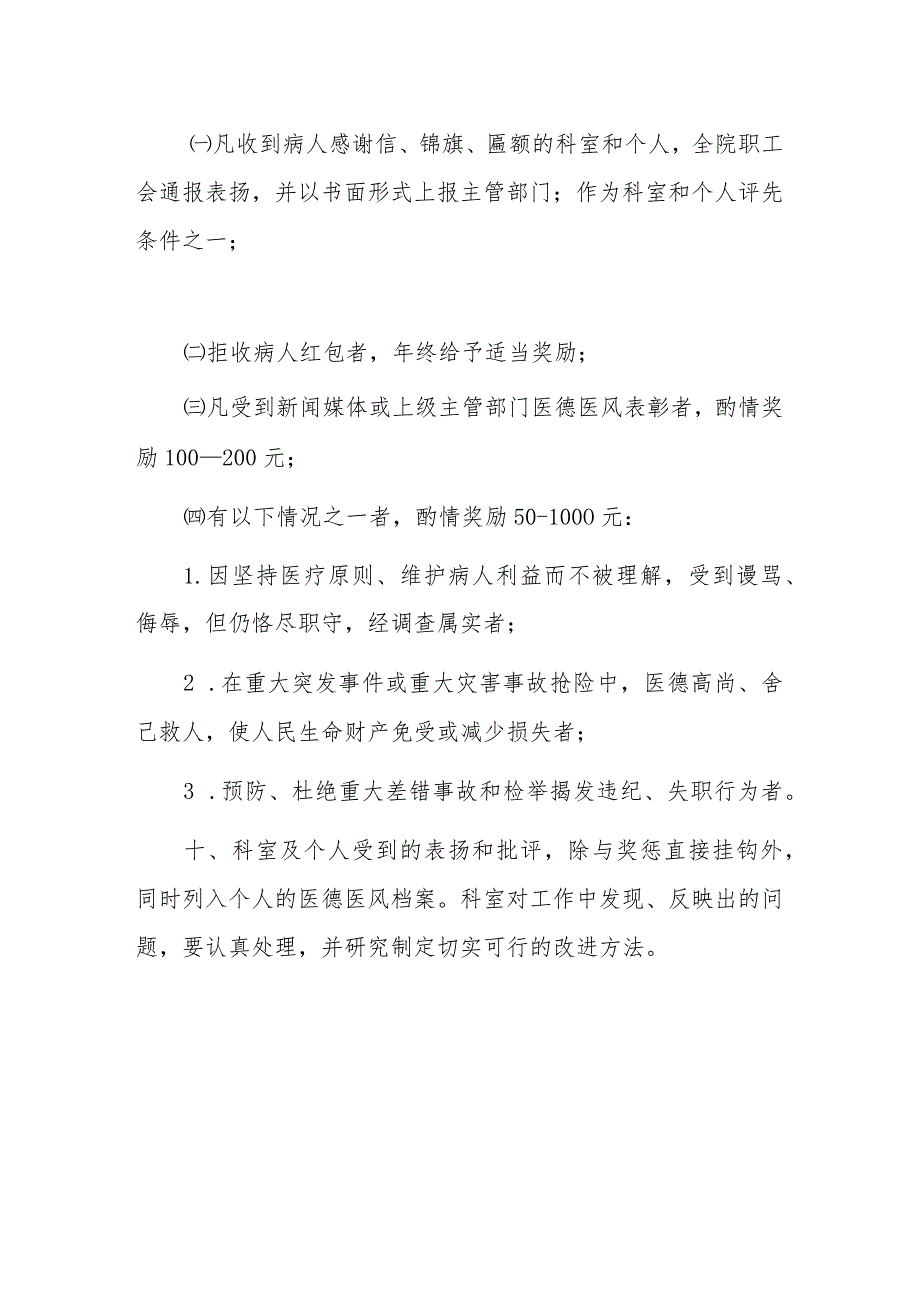 ㈠凡收到病人感谢信、锦旗、匾额的科室和个人，全院职工
会通报表扬，并以书面形式上报主管部门；作为科室和个人评先
条件之一；
㈡拒收病人红包者，年终给予适当奖励；
㈢凡受到新闻媒体或上级主管部门医德医风表彰者，酌情奖
励100—200元；
㈣有以下情况之一者，酌情奖励50-1000元：
1.因坚持医疗原则、维护病人利益而不被理解，受到谩骂、
侮辱，但仍恪尽职守，经调查属实者；
2 .在重大突发事件或重大灾害事故抢险中，医德高尚、舍
己救人，使人民生命财产免受或减少损失者；
3 .预防、杜绝重大差错事故和检举揭发违纪、失职行为者。
十、科室及个人受到的表扬和批评，除与奖惩直接挂钩外，
同时列入个人的医德医风档案。科室对工作中发现、反映出的问
题，要认真处理，并研究制定切实可行的改进方法。